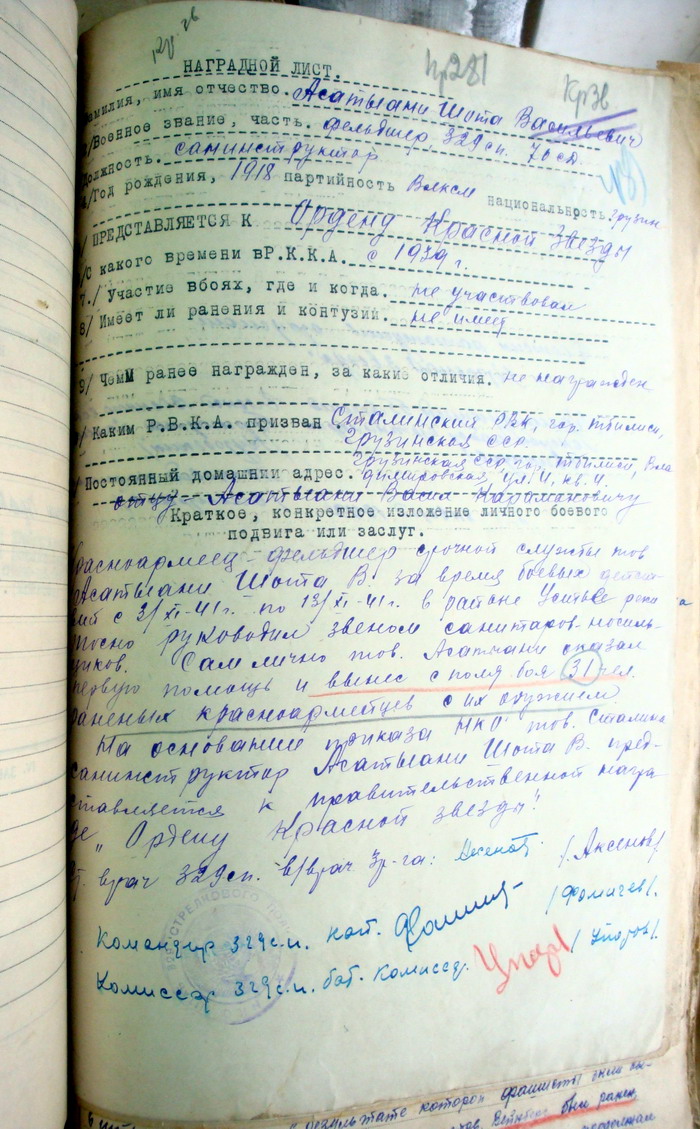 пр281
КрЗв
НАГРАДНОЙ ЛИСТ.
амилия, имя отчество. Асатиани Шота Васильевич
/Военное звание, часть. фельдшер, 329 сп. 70 сд.
Должность. санинструктор
/Год рождения, 1918 партийность Влксм национальность. грузин
/ ПРЕДСТАВЛЯЕТСЯ К Ордену Красной Звезды
/С какого времени вР.К.К.А. с 1939 г.
7./ Участие вбоях, где и когда. не участвовал
8/ Имеет ли ранения и контузии. не имеет
9/ ЧемМ ранее награжден, за какие отличия. не награжден
/ Каким Р.В.К.А. призван Сталинский РВК, гор. Тбилиси,
Грузинская ССР
/ Постоянный домашнии адрес. Грузинская ССР гор. Тбилиси, Вла
димировская, ул. 11, кв. 4.
отцу - Асатиани Васил Кахамановичу
Краткое, конкретное изложение личного боевого
подвига или заслуг.
Красноармеец - фельдшер срочной службы тов
Асатиани Шота В. за время боевых дейст
вий с 3/XI-41г. по 13/XI-41г. в районе Устье реки
Тосно руководил звеном санитаров-носиль-
щиков. Сам лично тов. Асатиани оказал
первую помощь и вынес с поля боя 31 чел.
раненых красноармейцев с их оружием
На основании приказа НКО тов. Сталина
санинструктор Асатиани Шота В. пред-
ставляется к правительственной награ
де „Ордену Красной звезды".
Ст. врач 329 сп. в/врач 3р-га: /Аксенов/
Командир 329 с.п. кап. /Фомичев/.
Комиссар 329 с.п. бат. комиссар. /Упоров/.
результате которой фашисты были вы-
тов. Вейнберг был ранен,